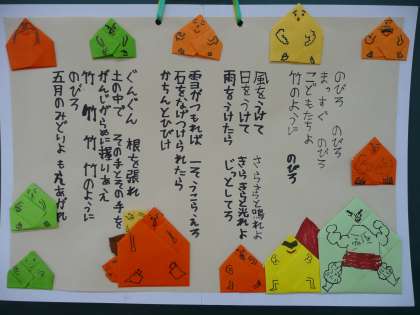 のびろ　のびろ
まっすぐ　のびろ
こどもたちよ
竹のように　のびろ
風をうけて　さらさらと鳴れよ
日をうけて　きらきらと光れよ
雨をうけたら　じっとしてろ
雪がつもれば　一そうこらえろ
石をなげつけられたら
かちんとひびけ
ぐんぐん　根を張れ
土の中で　その手とその手を
がんじがらめに握りあえ
竹　竹　竹　竹のように
のびろ
五月のみどりよ　もえあがれ